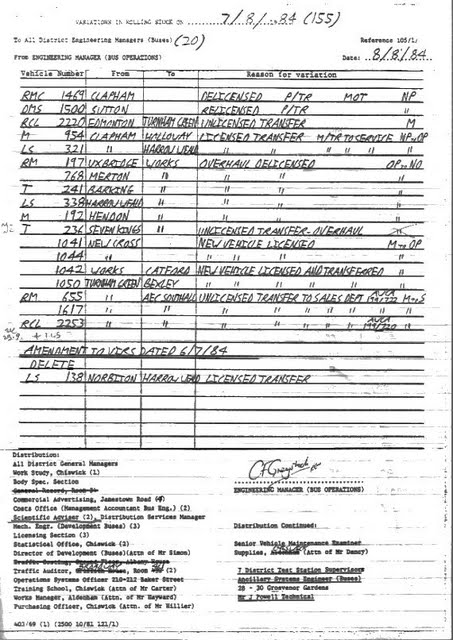 VARIATIONS IN ROLLING STOCK ON 7/8/84 (155)
To All District Engineering Managers (Buses) (20) Reference 105/1/
From ENGINEERING MANAGER (BUS OPERATIONS) Date: 8/8/84
Vehicle Number From To Reason for variation
RMC 1469 CLAPHAM DELICENSED P/TR MOT NP
DMS 1500 SUTTON RELICENSED P/TR "
RCL 2220 EDMONTON TURNHAM GREEN UNLICENSED TRANSFER M
M 954 CLAPHAM HOLLOWAY LICENSED TRANSFER M/TR TO SERVICE NP to OP
LS 321 " HARROW WEALD " " " " " "
RM 197 UXBRIDGE WORKS OVERHAUL DELICENSED OP to NO
768 MERTON " " " "
T 241 BARKING " " " "
LS 338 HARROW WEALD " " " "
M 192 HENDON " " " "
T 236 SEVEN KINGS " UNLICENSED TRANSFER-OVERHAUL
1041 NEW CROSS NEW VEHICLE LICENSED M to OP
1044 " " " " "
1042 WORKS CATFORD NEW VEHICLE LICENSED AND TRANSFERRED "
1050 TURNHAM GREEN BEXLEY " " " " " "
RM 655 " AEC SOUTHALL UNLICENSED TRANSFER TO SALES DEPT M to S
1617 " " " " " " " "
RCL 2253 " " " " " " "
AMENDMENT TO VIRS DATED 6/7/84
DELETE
LS 138 NORBITON HARROW WEALD LICENSED TRANSFER
Distribution:
All District General Managers
Work Study, Chiswick (1)
Body Spec. Section
General Record, Room 84
ENGINEERING MANAGER (BUS OPERATIONS)
Commercial Advertising, Jamestown Road
Costs Office (Management Accountant Bus Eng.) (2)
Scientific Adviser (2), Distribution Services Manager
Mech. Engr. (Development Buses) (3) Distribution Continued:
Licensing Section (3)
Statistical Office, Chiswick (2) Senior Vehicle Maintenance Examiner
Director of Development (Buses)(Attn of Mr Simon) Supplies, (Attn of Mr Dancy)
Traffic Auditor,
7 District Test Station Supervisors
Operations Systems Officer 210-212 Baker Street Ancillary Systems Engineer (Buses)
Training School, Chiswick (Attn of Mr Carter) 28 - 30 Grosvenor Gardens
Works Manager, Aldenham (Attn of Mr Hayward) Mr J Powell Technical
Purchasing Officer, Chiswick (Attn of Mr Hillier)
402/69 (1) (2500 10/81 121/1)